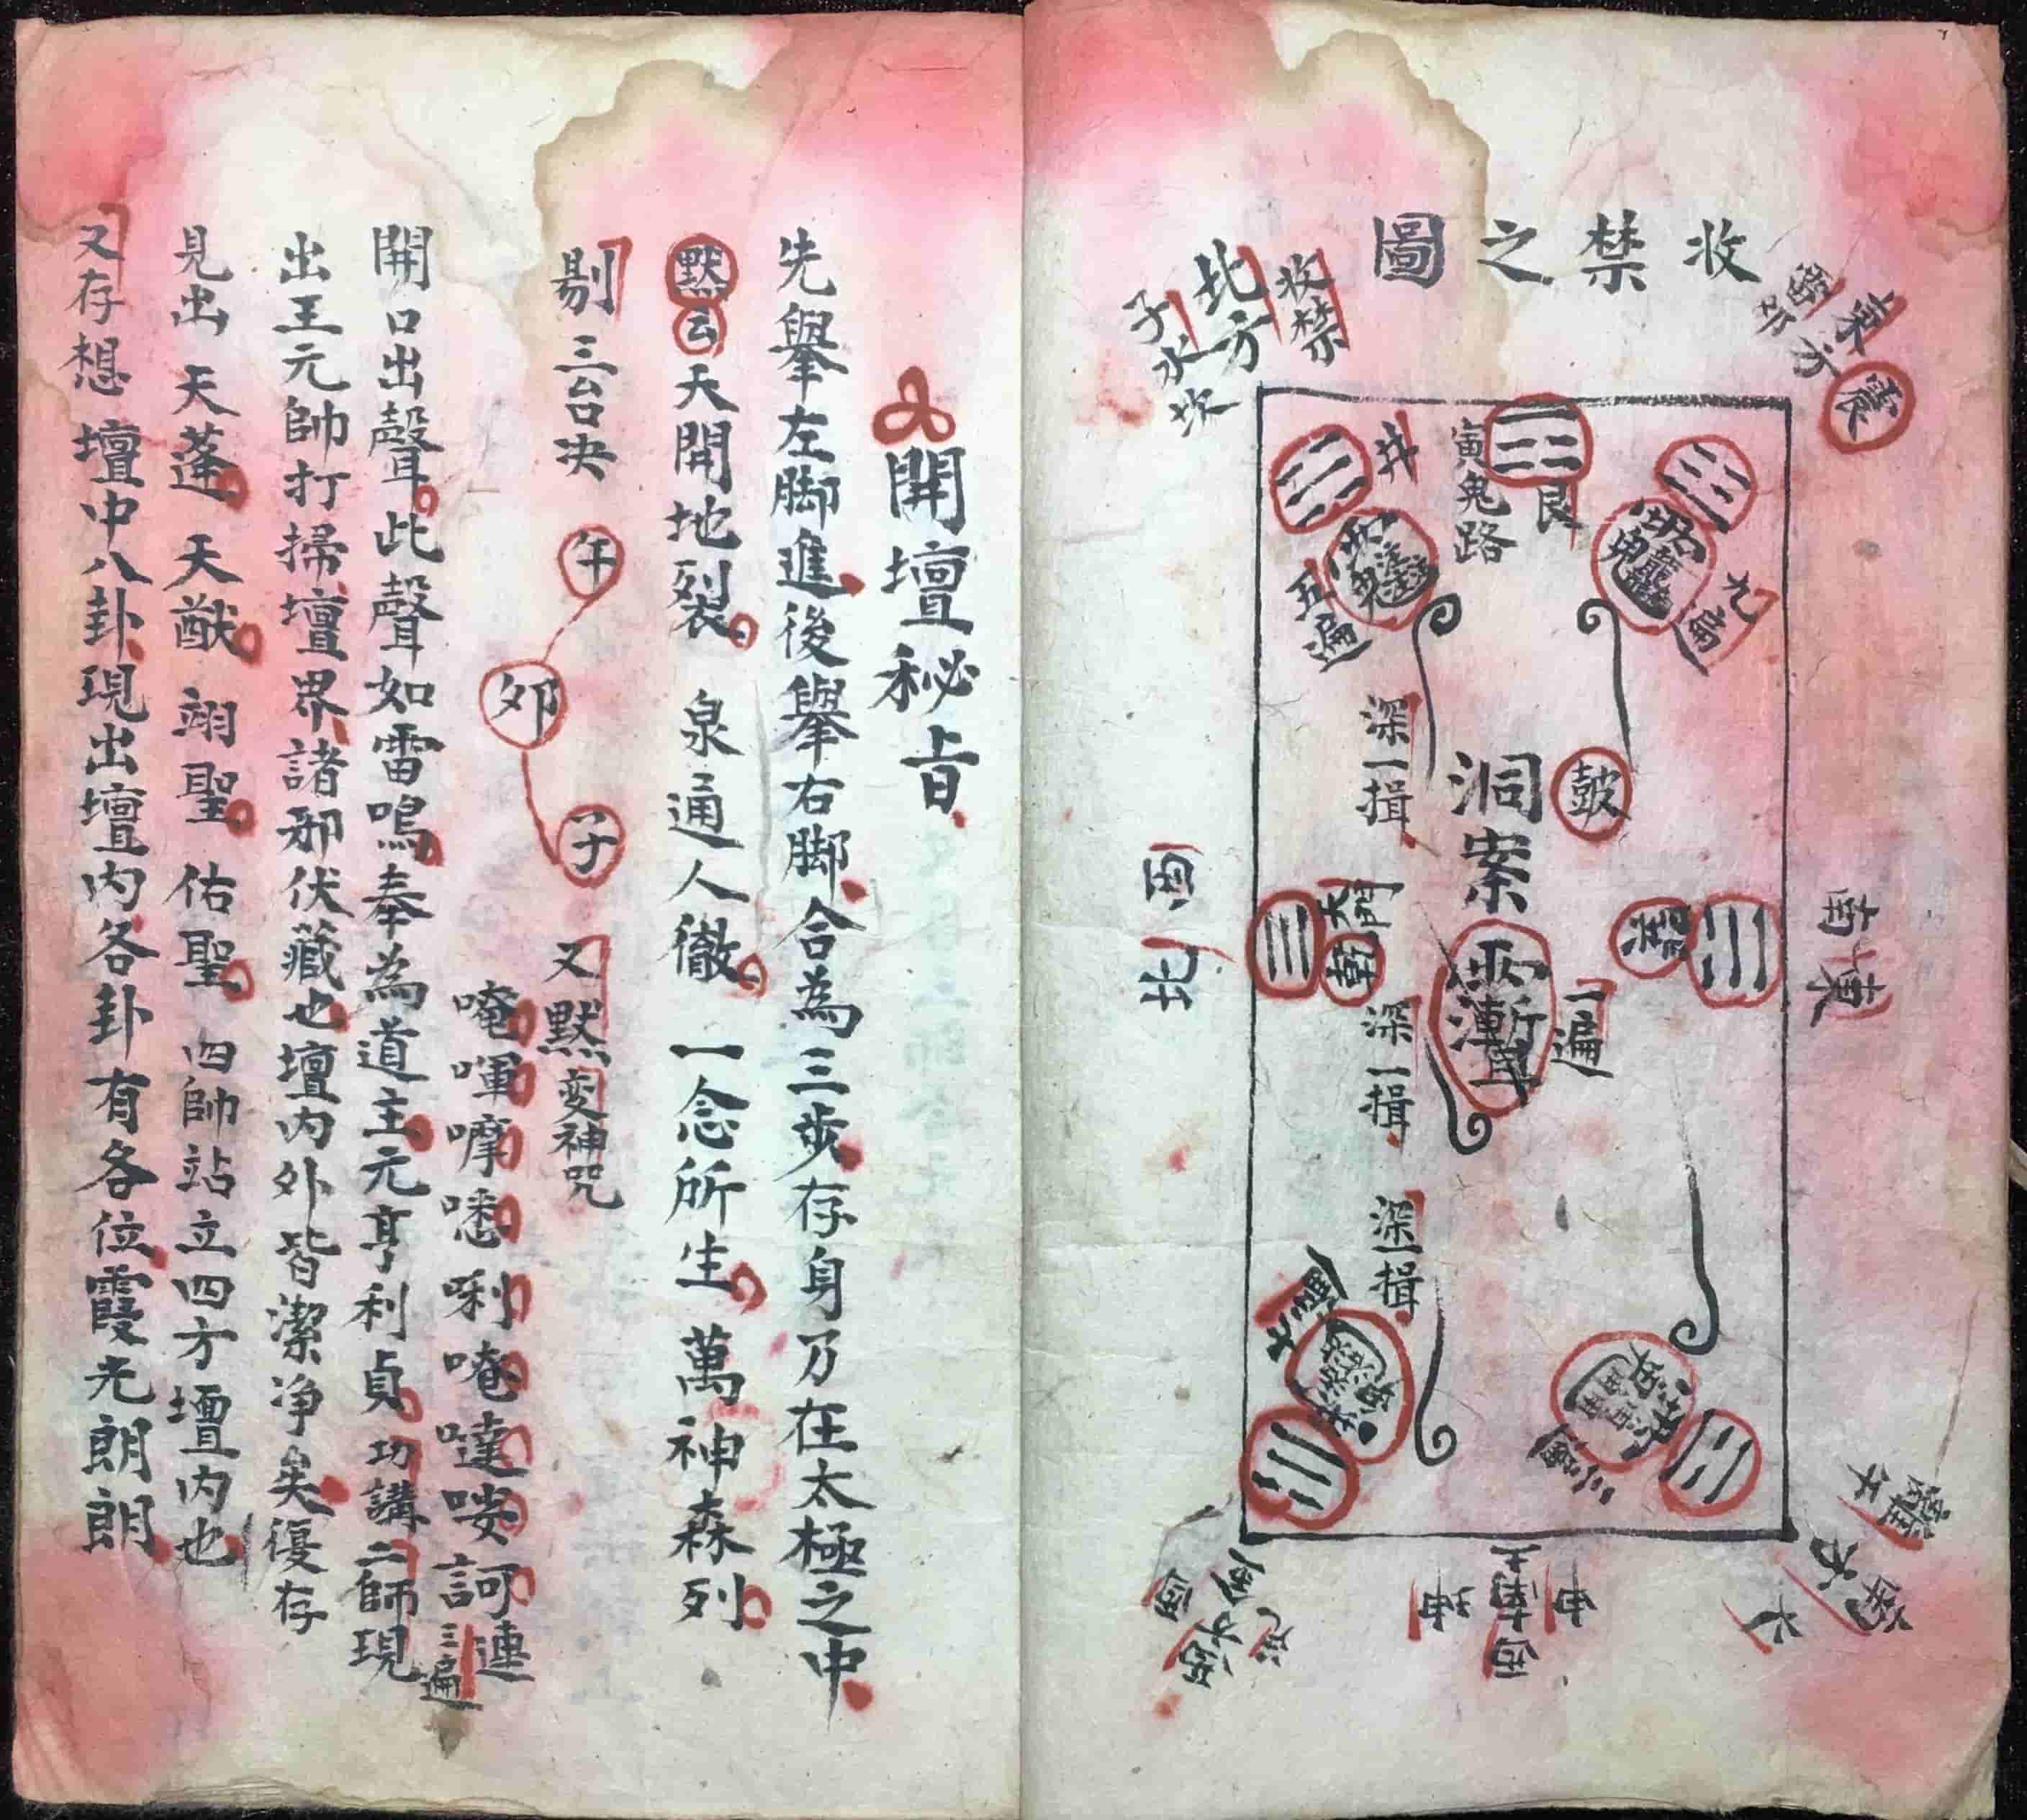 收禁之圖
東方
震
收禁
北方
子水坎
艮
寅鬼路
九遍
五遍
深一揖
洞案
鼓
西北
天門
乾
南東
深一揖
一遍
深一揖
七遍
三遍
開壇秘旨
先舉左脚進後舉右脚合為三步存身乃在太極之中
默云天開地裂泉通人徹一念所生萬神森列
剔三台决午卯子又默变神咒
唵㖞嚤㗭唎唵噠㗒訶連三遍
開口出聲此聲如雷鳴奉為道主元亨利貞功講二師現
出王元帥打掃壇界諸邪伏藏也壇内外皆潔净矣復存
見出天蓬天猷翊聖佑聖四帥站立四方壇内也
又存想壇中八卦現出壇内各卦有各位霞光朗朗